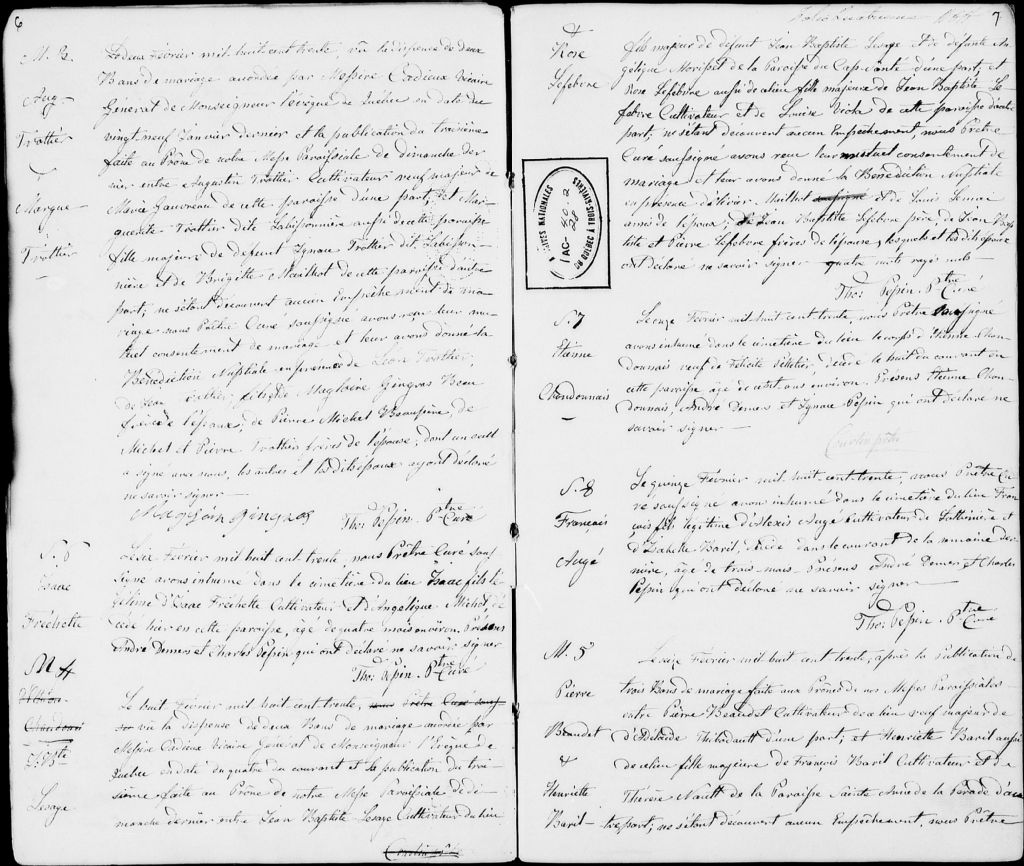 6
M. 3
Aug.
Trottier
&
Margue
Trottier
Le deux Février mil huit cent trente vû la dispense de deux
Bans de mariage accordée par Messire Cadieux Vicaire
Général de Monseigneur l'évêque de Québec en date du
vingt neuf Janvier dernier et la publication du troisième
faite au Prône de notre Messe Paroissiale de dimanche der
nier entre Augustin Trottier Cultivateur veuf majeur de
Marie Gauvreau de cette paroisse d'une part; et Mar-
guerite Trottier dite Labissonnière aussi de cette paroisse
fille majeure de défunt Ignace Trottier dit Labisson-
nière et de Brigitte Mailhot de cette paroisse d'autre
part; ne s'étant découvert aucun Empêchement de ma-
riage nous Prêtre Curé soussigné avons reçu leur mu-
tuel consentement de mariage et leur avons donné la
Bénédiction Nuptiale en présence de Léon Trottier,
de Jean Trottier, Magloire Gingras Beau
frère de l'époux; de Pierre Michel Beaupère, de
Michel et Pierre Trottier frères de l'épouse, dont un seul
a signé avec nous, les autres et les dits époux ayant déclaré
ne savoir signer —
Magloire Gingras Thos. Pepin. Ptre Curé
S. 6
Isaac
Fréchette
Le six Février mil huit cent trente, nous Prêtre Curé sous
signé avons inhumé dans le cimetière du lieu Isaac fils lé
gitime d'Isaac Fréchette Cultivateur et d'Angélique Michel, dé
cédé hier en cette paroisse, âgé de quatre mois environ. Présens
André Demers et Charles Pepin qui ont déclaré ne savoir signer
Thos. Pepin. Ptre Curé
M 4
J. Bte
Lesage
Le huit Février mil huit cent trente, nous Prêtre Curé souss-
vû la dispense de deux Bans de mariage accordée par
Messire Cadieux Vicaire Général de Monseigneur l'Evêque de
Québec en date du quatre du courant et la publication du troi-
sième faite au Prône de notre Messe Paroissiale de di-
manche dernier entre Jean Baptiste Lesage Cultivateur du lieu
7
&
Rose
Lefebvre
fils majeur de défunt Jean Baptiste Lesage et de défunte An-
gélique Morisset de la Paroisse du Cap Santé d'une part; et
Rose Lefebvre aussi de ce lieu fille majeure de Jean Baptiste Le-
febvre Cultivateur et de Louise de cette paroisse d'autre
part; ne s'étant découvert aucun Empêchement, nous Prêtre
Curé soussigné avons reçu leur mutuel consentement de
mariage et leur avons donné la Bénédiction Nuptiale
en présence d'Olivier Mailhot et de Louis
amis de l'époux; de Jean Baptiste Lefebvre père de Jean Bap
tiste et Pierre Lefebvre frères de l'épouse, lesquels et les dits époux
ont déclaré ne savoir signer quatre mots rayés nuls —
Thos. Pepin. Ptre Curé
ARCHIVES NATIONALES
DU QUÉBEC À TROIS-RIVIÈRES
S. 7
Etienne
Chandonnais
—
Le onze Février mil huit cent trente, nous Prêtre soussigné
avons inhumé dans le cimetière du lieu le corps d'Etienne Chan
donnais veuf de Félicité Pelletier, décédé le huit du courant en
cette paroisse âgé de ans environ. Présens Etienne Chan-
donnais, André Demers et Ignace Pepin qui ont déclaré ne
savoir signer —
S. 8
François
Augé
Le quinze Février mil huit cent trente, nous Prêtre Cu
ré soussigné avons inhumé dans le cimetière du lieu Fran
çois fils légitime d'Alexis Augé Cultivateur de Lotbinière et
d'Isabelle Baril, décédé dans le courant de la semaine der
nière, âgé de trois mois. Présens André Demers et Charles
Pepin qui ont déclaré ne savoir signer —
Thos. Pepin. Ptre Curé
M. 5
Pierre
Beaudet
&
Henriette
Baril
Le seize Février mil huit cent trente, après la Publication de
trois Bans de mariage faite aux Prônes de nos Messes Paroissiales
entre Pierre Beaudet Cultivateur de ce lieu veuf majeur de
d'Adelaide Thibodault d'une part; et Henriette Baril aussi
de ce lieu fille majeure de François Baril Cultivateur et de
Thérèse Nault de la Paroisse Sainte Anne de la Pérade d'au
tre part; ne s'étant découvert aucun Empêchement, nous Prêtre